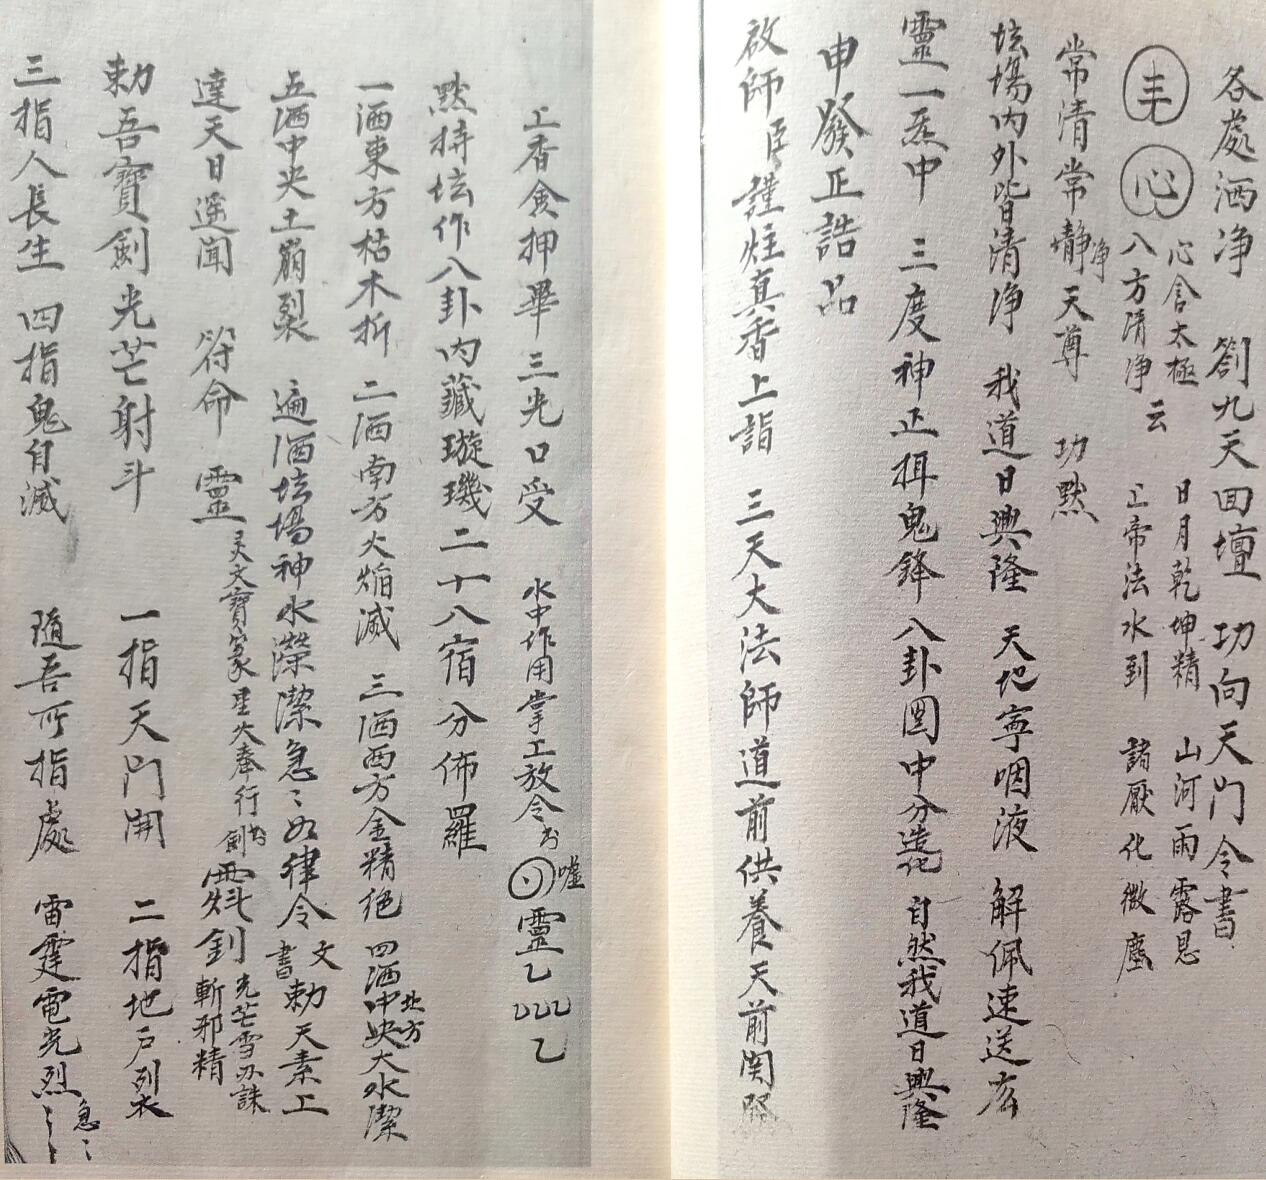 各處洒净 劄九天回壇 功向天门令書
丰 心 心含太極 八方清净 云 日月乾坤精 上帝法水到 山河雨露恩 諸厭化微塵
常清常靜净天尊 功黙
坛場内外皆清净 我道日興隆 天地寧 咽液 解佩速送広
靈一炁中 三度神正揖鬼鋒 八卦圍中分造化 自然我道日興隆
申發正誥品
啟師 臣謹炷真香上詣 三天大法師道前供養天前関
工香貪押畢三光口受 水中作用掌工放令 靈乙 乙
黙持坛作八卦内藏璇璣二十八宿分佈羅
一洒東方枯木折 二洒南方火熖滅 三洒西方金精绝 四洒中央北方大水潔
五洒中央土崩裂 遍洒坛場神水潔急〻如律令 書文 勅天素工
達天日遥闻 符命 靈 灵文寶篆 星火奉行 釗 光芒雪刃誅斬邪精
勅吾寶劍光芒射斗 一指天门開 二指地户裂
三指人長生 四指鬼自滅 隨吾所指處 雷霆電光烈 急〻